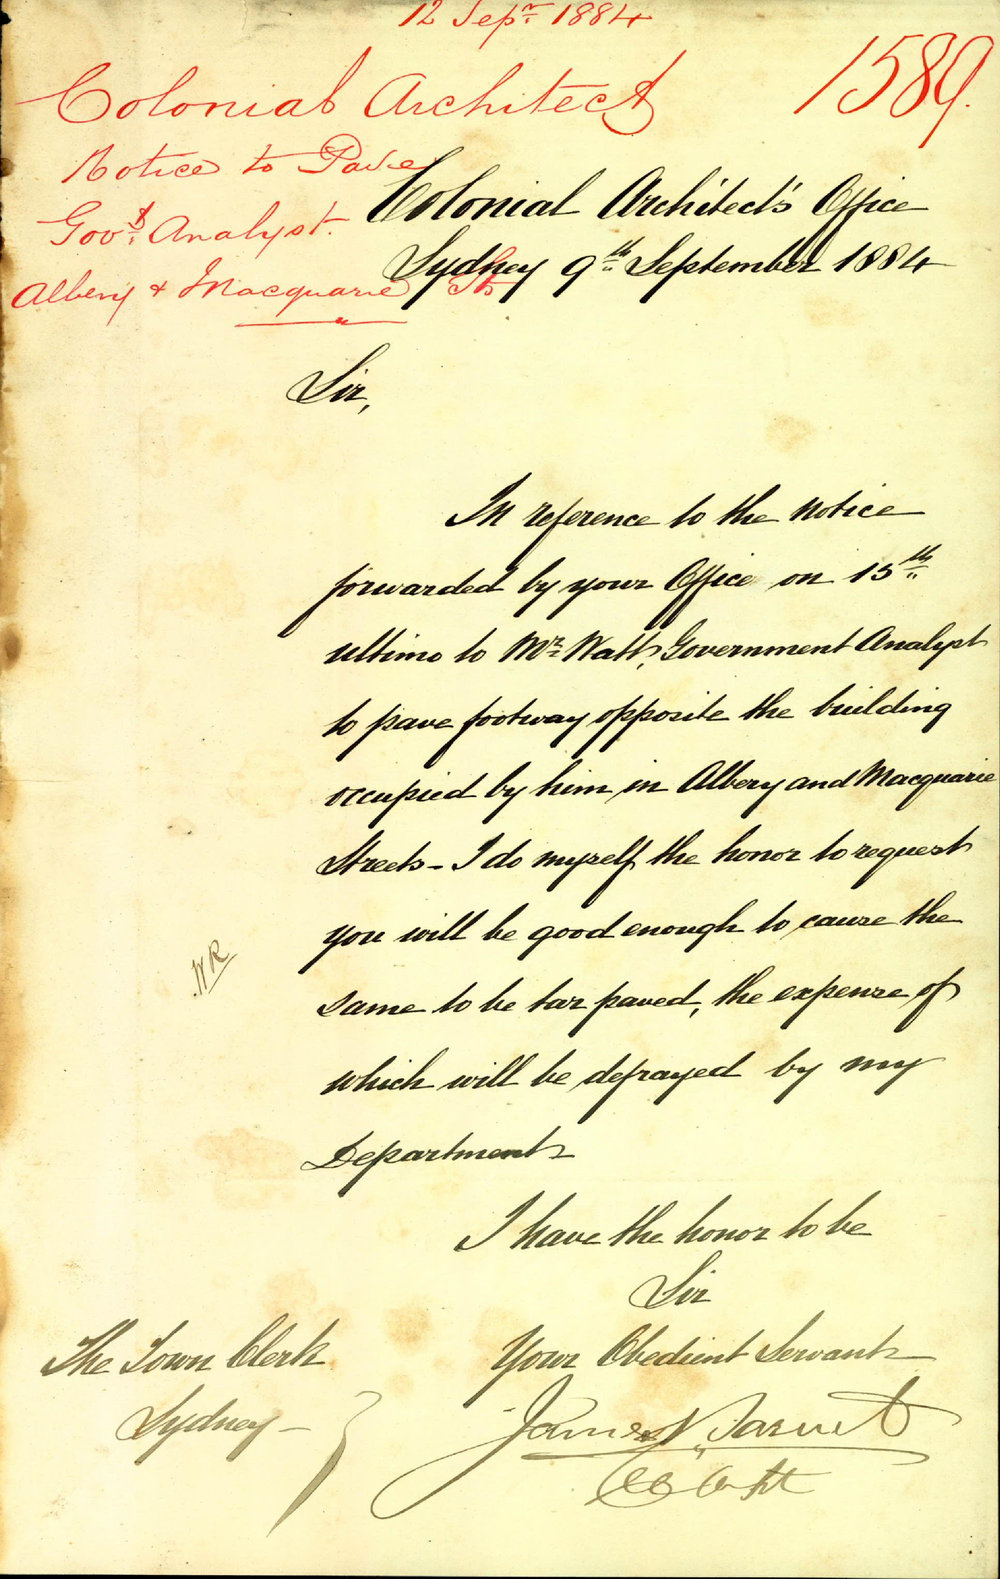 12 Sepr. 1884
1589.
Colonial Architect
Notice to Pave
Govt. Analyst.
Albery & Macquarie Sts
Colonial Architect's Office
Sydney 9th September 1884
Sir,
In reference to the notice
forwarded by your Office on 15th
ultimo to Mr. Watt, Government Analyst
to pave footway opposite the building
occupied by him in Albery and Macquarie
Streets - I do myself the honor to request
you will be good enough to cause the
same to be tar paved, the expense of
which will be defrayed by my
Department
WR
I have the honor to be
Sir
Your Obedient Servant
James Barnet
The Town Clerk
Sydney -